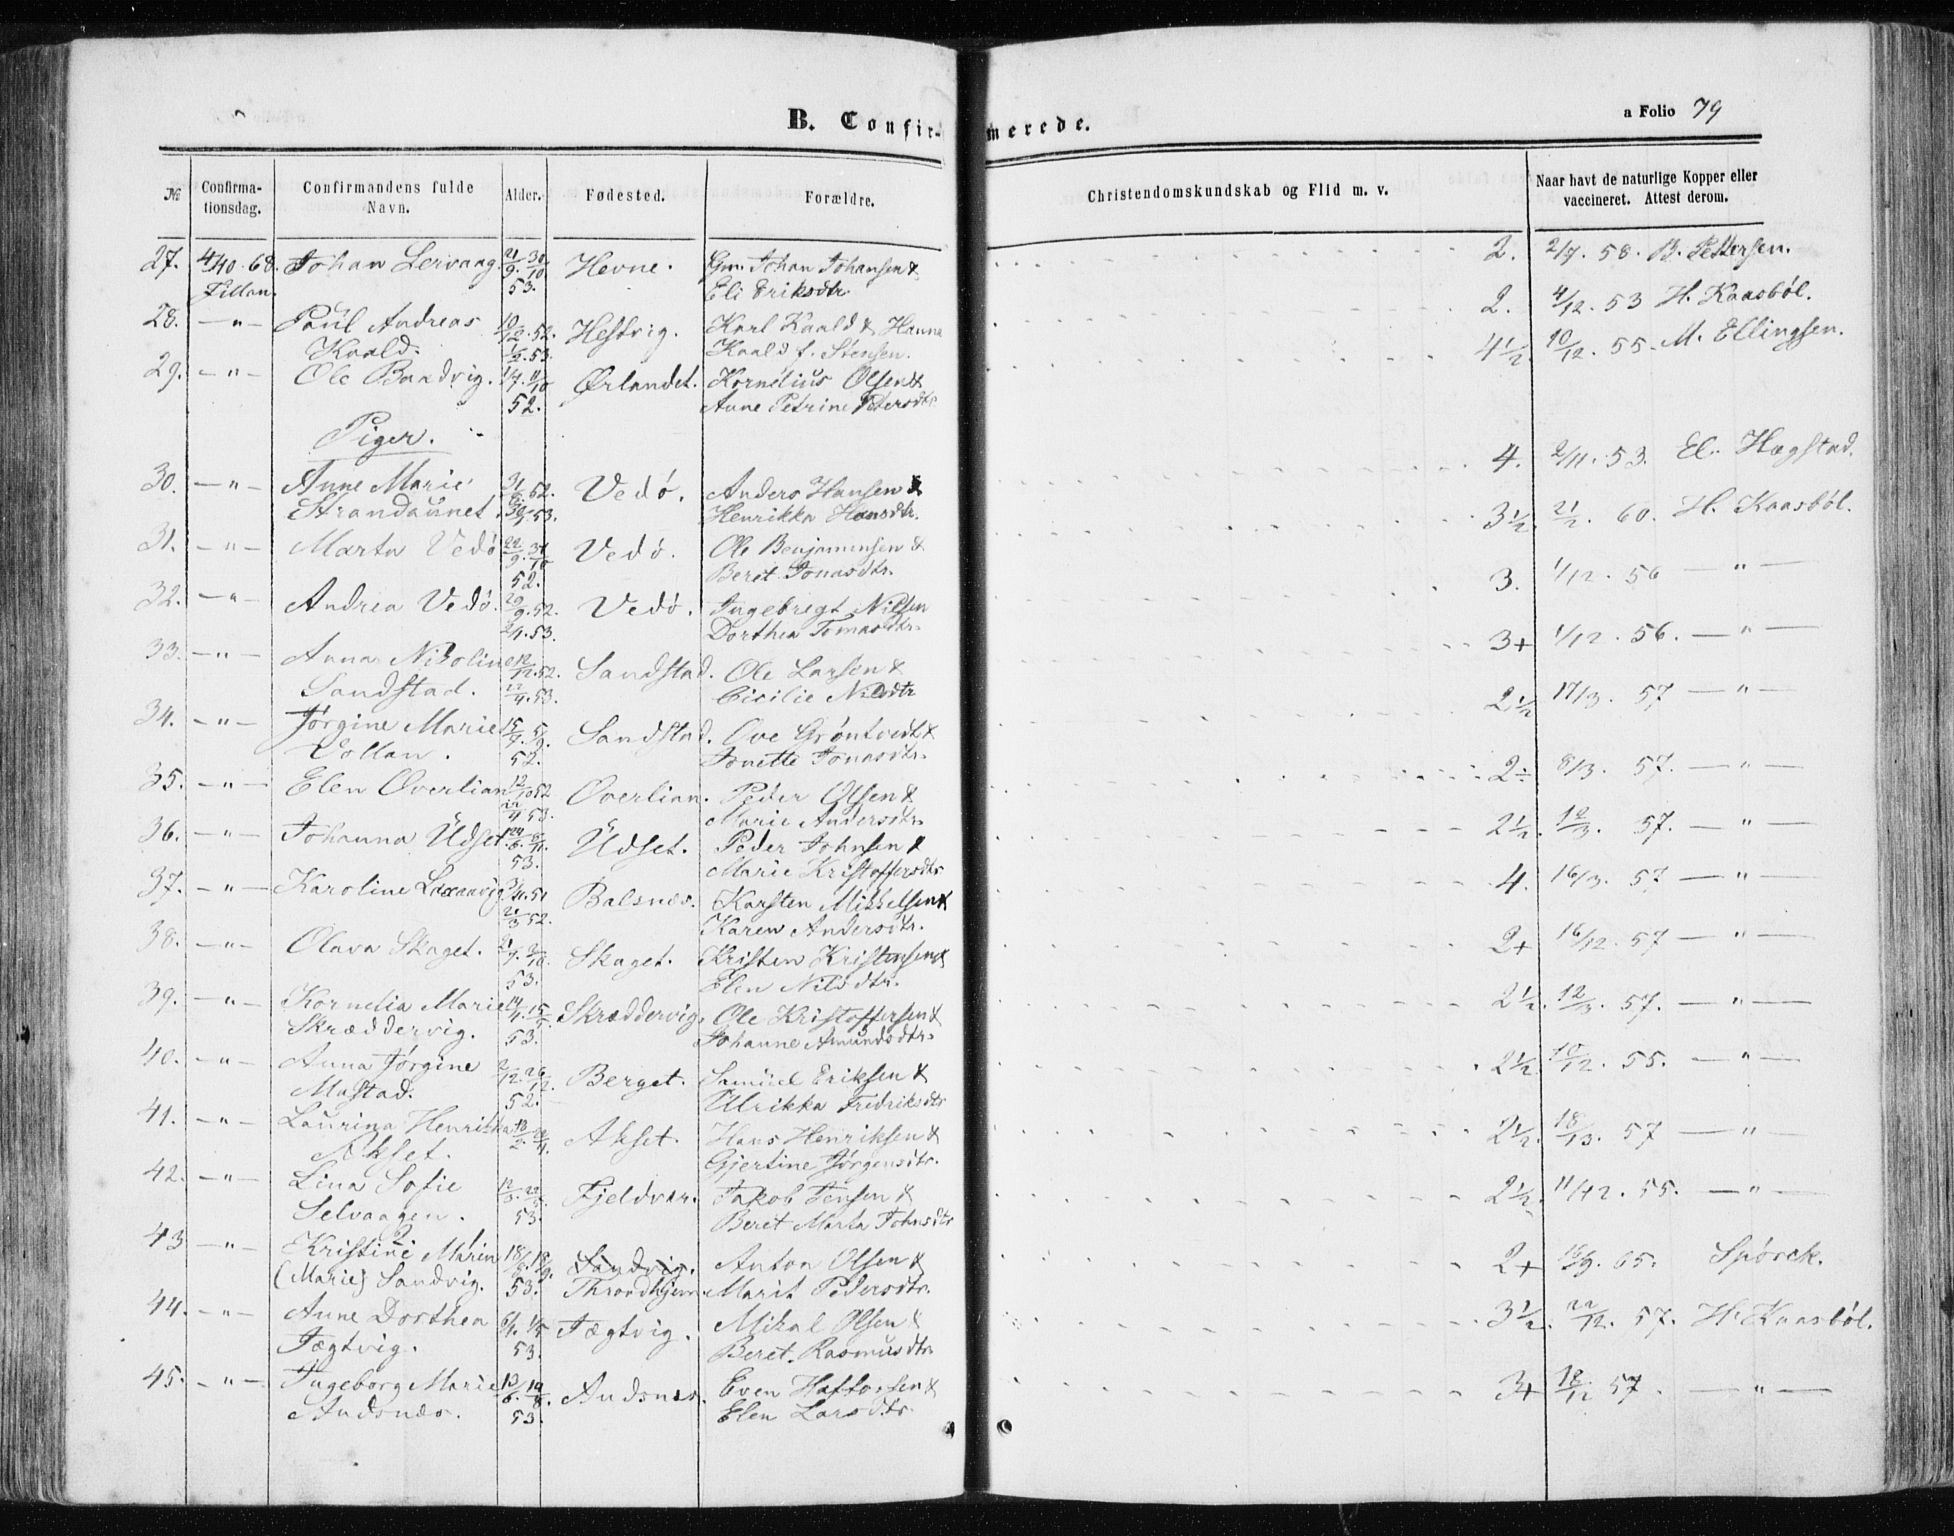 B. Confir-
merede.
a Folio 79
№
Confirma-
tionsdag.
Confirmandens fulde
Navn.
Alder.
Fødested.
Forældre.
Christendomskundskab og Flid m. v.
Naar havt de naturlige Kopper eller
vaccineret. Attest derom.
27. 4/10 68. Johan Lervaag 21/9 30/10 Hevne. Gm. Johan Johansen & 2. 2/7. 58. B. Pettersen.
Fillan. 53. Eli Eriksdtr.
28. — " — Paul Andreas 52. Hestvig. Karl Kaald & Hanna 2. 4/12. 53 H. Kaasböl.
Kaald. 53. Kaald f. Stensen.
29. — " — Ole Bandvig. Ørlandet. Kornelius Olsen & 4½ 10/12. 55. M. Ellingsen.
52. Anne Petrine Petersdtr.
Piger.
30. — " — Anne Marie 52. Vedø. Anders Hansen & 4. 2/11. 53. El. Hægstad.
Strandaunet. 53. Henrikka Hansdtr.
31. — " — Marta Vedø 22/9. 31/10 Vedø. Ole Benjaminsen & 3½ 21/2. 60. H. Kaasböl.
52. Beret Jonasdtr.
32. — " — Andrea Vedø. 29/9. 52. Vedø. Ingebregt Nilsen 3. 1/12. 56 — " —
53. Dorthea Tomasdtr.
33. — " — Anna Nikoline 12/12. 52. Sandstad. Ole Larsen & 3+ 1/12. 56. — " —
Sandstad. 22/4. 53. Cicilie Nilsdtr
34. — " — Jørgine Marie Sandstad. Ove Grøntvedt & 2½ 17/3. 57 — " —
Vollan. 52. Jonette Jonasdtr.
35. — " — Elen Overlian 12/10 52 Overlian. Peder Olsen & 2÷ 8/3. 57. — " —
22/4 53. Marie Andersdtr.
36. — " — Johanna Udset. Udset. Peder Johnsen & 2½ 12/3. 57. — " —
53. Marie Kristoffersdtr
37. — " — Karoline 51 Balsnes. Karsten Mikkelsen & 4. 16/3. 57 — " —
21/3 52. Karen Andersdtr.
38. — " — Olava Skaget. Skaget. Kristen Kristensen & 2+ 16/12. 57 — " —
53. Elen Nilsdtr.
39. — " — Kornelia Marie 14/4. 15/5. Skræddervig. Ole Kristoffersen & 2½. 12/3. 57. — " —
Skræddervig. 53. Johanne Amundsdtr.
40. — " — Anna Jørgine 2/12. 26/12. Berget. Samuel Eriksen & 2½ 10/12. 55. — " —
Mastad. 52. Ulrikka Fredriksdtr
41. — " — Laurina Henrikka Akset. Hans Henriksen & 2½. 18/13. 57 — " —
Akset. Gjertine Jørgensdtr.
42. — " — Lina Sofie Fjeldvær. Jakob Jensen & 2½. 11/12. 55. — " —
Selvaagen. 53. Beret Marta Johnsdtr
43 — " — Kristine Marin Sandvig. Anton Olsen & 2+ 65. Spörck.
(Marie) Sandvig. 53. Throndhjem. Marit Pedersdtr.
44. — " — Anne Dorthea Fægtvig. Mikal Olsen & 3½. 22/12. 57. H. Kaasböl.
Fægtvig. 53. Beret Rasmusdtr
45. — " — Ingeborg Marie 13/6. 19/8. Andsnes. Even Haftorsen & 3+ 18/12 57. — " —
Andsnæs. 53. Elen Larsdtr.